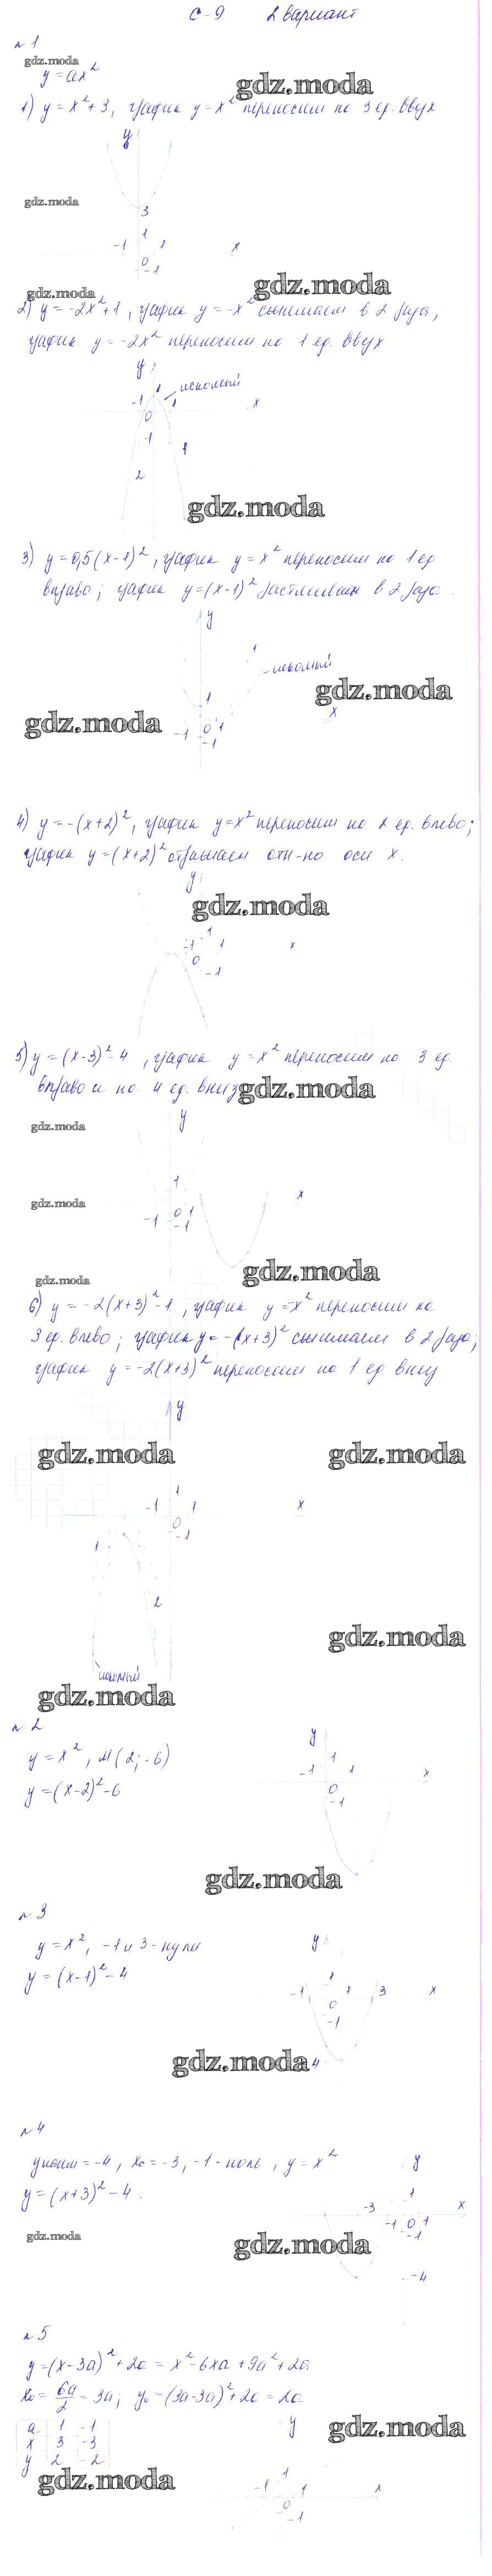 С-9 2 вариант
№1
gdz.moda
y=ax²
gdz.moda
1) y=x²+3, график y=x² переносим на 3 ед. вверх
y
gdz.moda
3
1
-1 1 x
0
-1
gdz.moda
gdz.moda
2) y=-2x²+1, график y=-x² сжимаем в 2 раза,
график y=-2x² переносим на 1 ед. вверх
y
искомый
-1 1 x
0
-1
1
2
gdz.moda
3) y=0,5(x-1)², график y=x² переносим на 1 ед.
вправо; график y=(x-1)² растягиваем в 2 раза.
y
1
искомый
gdz.moda
1
x
gdz.moda
-1 0 1
-1
4) y=-(x+2)², график y=x² переносим на 2 ед. влево;
график y=(x+2)² отражаем отн-но оси x.
y
gdz.moda
1
-1 1 x
0
-1
5) y=(x-3)²-4, график y=x² переносим на 3 ед.
вправо и на 4 ед. вниз
gdz.moda
y
gdz.moda
1
x
gdz.moda
-1 0 1
-1
gdz.moda
gdz.moda
6) y=-2(x+3)²-1, график y=-x² переносим на
3 ед. влево; график y=-(x+3)² сжимаем в 2 раза;
график y=-2(x+3)² переносим на 1 ед. вниз
y
gdz.moda gdz.moda
1
-1 1 x
0
-1
1
2
gdz.moda
искомый
gdz.moda
№2
y=x², M(2;-6)
y=(x-2)²-6
y
1
-1 1 x
0
-1
gdz.moda
№3
y=x², -1 и 3-нули
y=(x-1)²-4
y
1
-1 1 3 x
0
-1
gdz.moda
-4
№4
yнаим=-4, x₀=-3, -1-ноль, y=x²
y=(x+3)²-4.
y
1
-3 x
-1 0 1
-1
gdz.moda
gdz.moda
-4
№5
y=(x-3a)²+2a=x²-6xa+9a²+2a
x₀=6a/2=3a; y₀=(3a-3a)²+2a=2a
a 1 -1
x 3 -3
y 2 -2
y
gdz.moda
gdz.moda
1
-1 1 x
0
-1